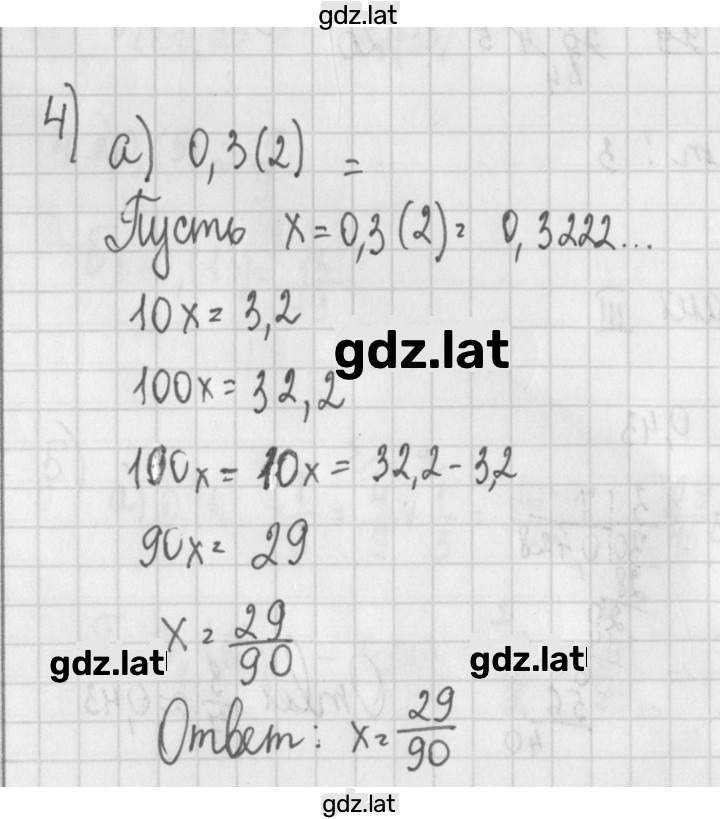 gdz.lat
4)
а) 0,3(2) =
Пусть x = 0,3(2) = 0,3222...
10x = 3,2
gdz.lat
100x = 32,2
100x = 10x = 32,2 - 3,2
90x = 29
x = 29/90
gdz.lat
gdz.lat
Ответ: x = 29/90
gdz.lat